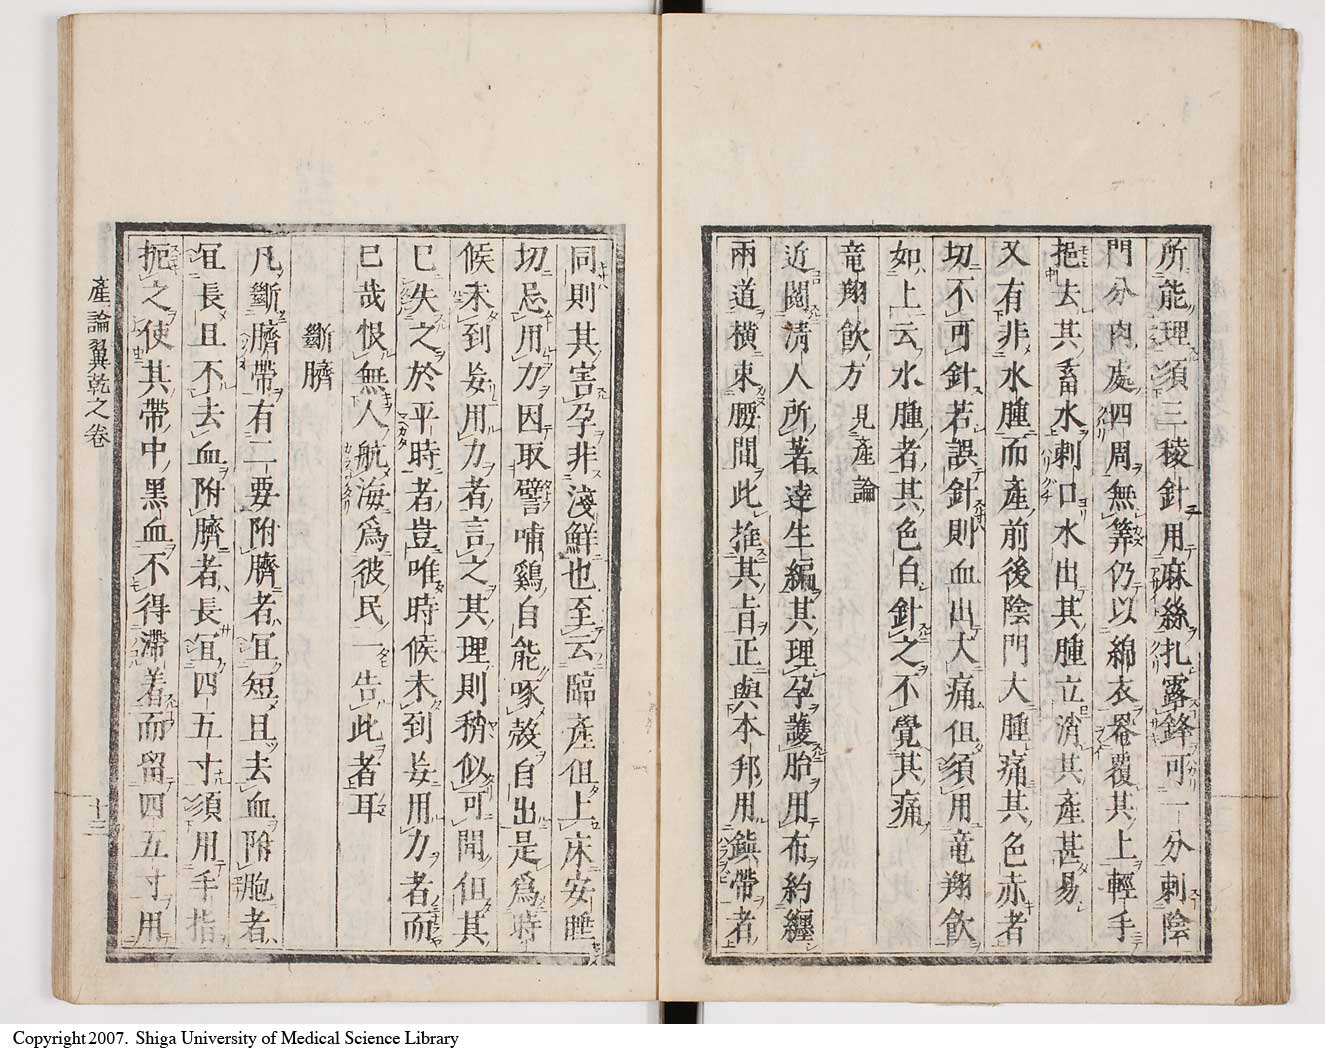 所能理須三稜針用麻絲扎露鋒可一分刺陰
門分肉處四周無筭仍以綿衣罨覆其上輕手
挹去其畜水刺口水出其腫立消其產甚易
又有非水腫而產前後陰門大腫痛其色赤者
切不可針若誤針則血出大痛但須用竜翔飲
如上云水腫者其色白針之不覺其痛
竜翔飲方 見產論
近閱清人所著達生編其理孕護胎用布約纏
兩道橫束腰間此推其旨正與本邦用鎮帶者
同則其害孕非淺鮮也至云臨產但上床安睡
切忌用力因取譬哺鷄自能啄殼自出是爲時
候未到妄用力者言之其理則稍似可聞但其
已失之於平時者豈唯時候未到妄用力者而
已哉恨無人航海爲彼民一告此者耳
斷臍
凡斷臍帶有二要附臍者宜短且去血附胞者
宜長且不去血附臍者長宜四五寸須用手指
扼之使其帶中黑血不得滯着而留四五寸用
產論翼乾之卷
十三
Copyright 2007. Shiga University of Medical Science Library